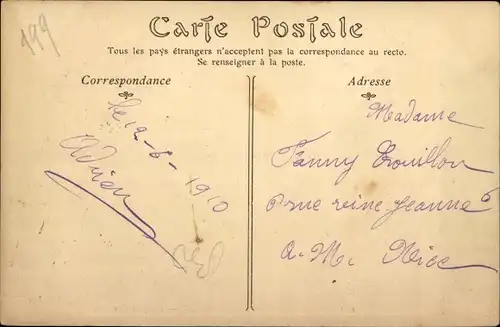 199
Carte Postale
Tous les pays étrangers n'acceptent pas la correspondance au recto.
Se renseigner à la poste.
Correspondance
Adresse
le 12-6-1910
Adrien
Madame
Fanny Trouillon
6 rue reine Jeanne 6
A. M. Nice